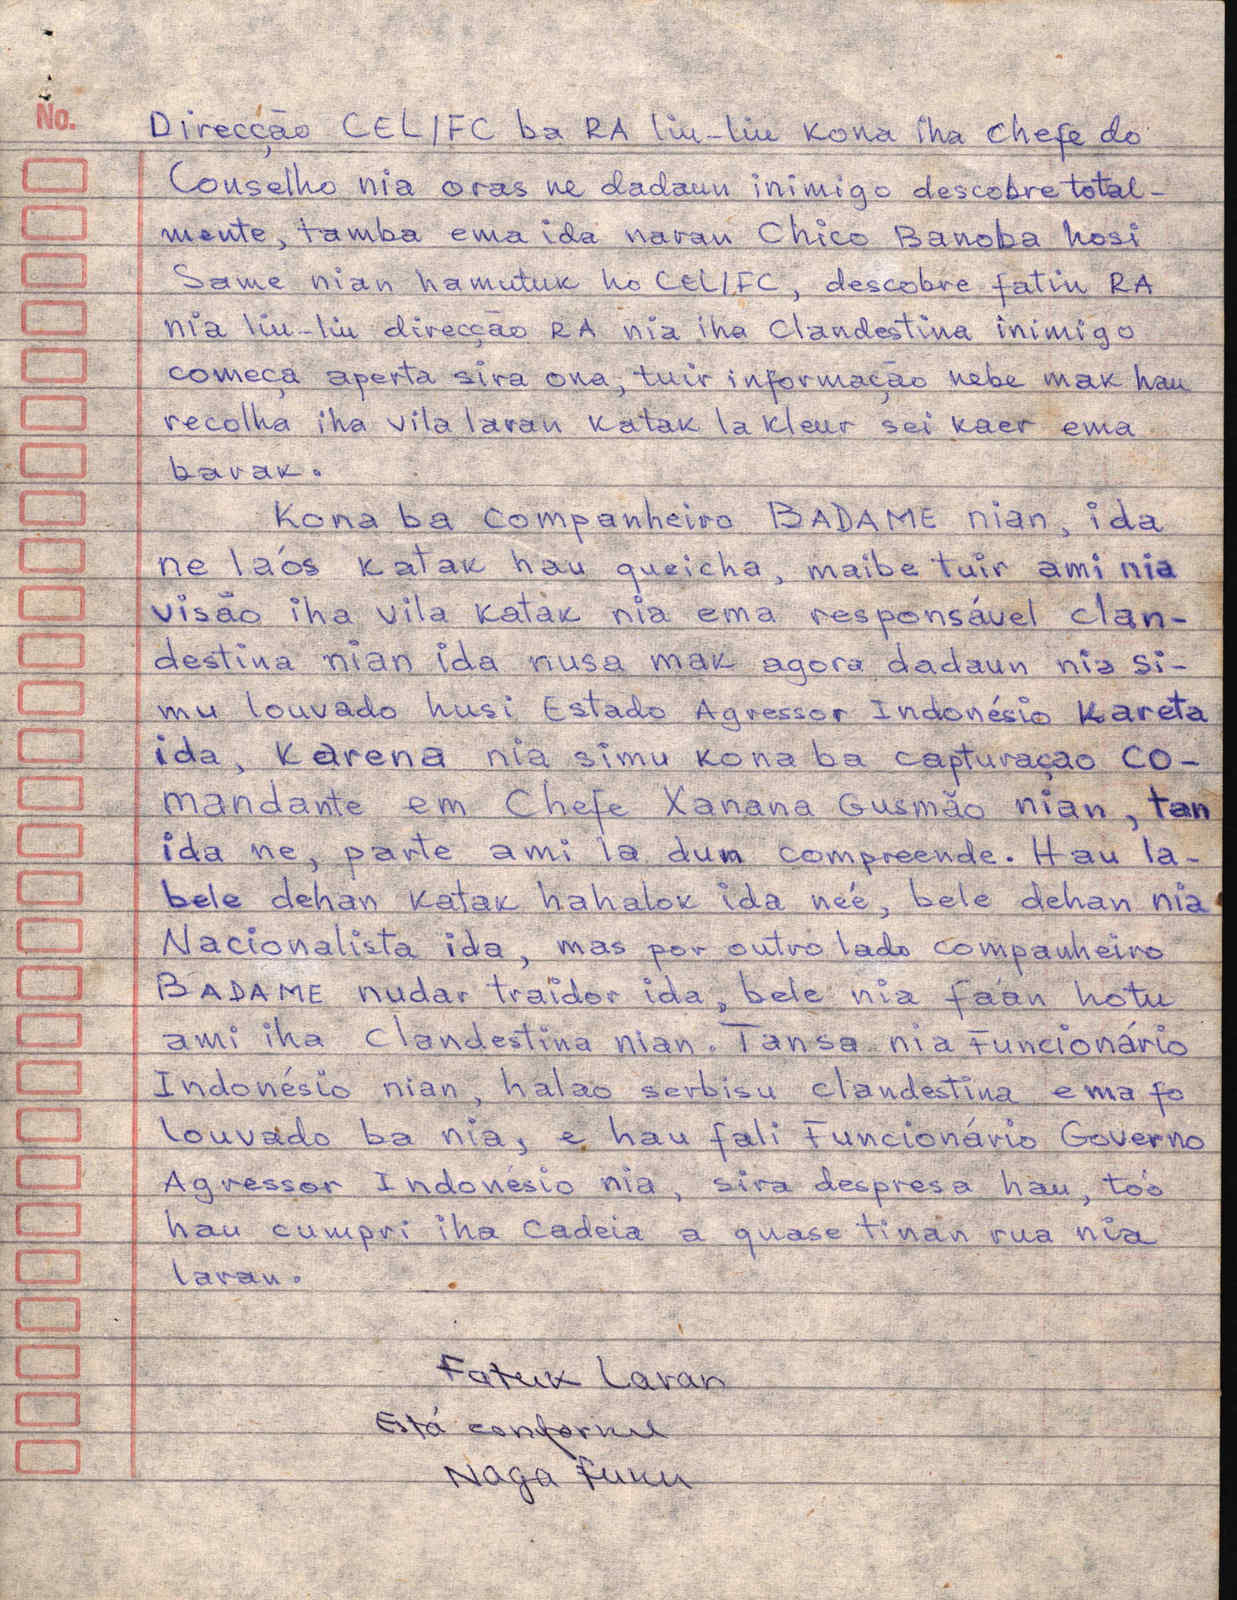 No.
Direcção CEL/FC ba RA liu-liu kona iha chefe do
Conselho nia oras ne dadaun inimigo descobre total-
mente, tamba ema ida naran Chico Banoba hosi
Same nian hamutuk ho CEL/FC, descobre fatin RA
nia liu-liu direcção RA nia iha Clandestina inimigo
começa aperta sira ona, tuir informação nebe mak hau
recolha iha vila laran katak la kleur sei kaer ema
barak.
Kona ba companheiro BADAME nian, ida
ne laós katak hau queicha, maibe tuir ami nia
visão iha vila katak nia ema responsável clan-
destina nian ida nusa mak agora dadaun nia si-
mu louvado husi Estado Agressor Indonésio kareta
ida, karena nia simu kona ba capturaçao co-
mandante em Chefe Xanana Gusmão nian, tan
ida ne, parte ami la dun compreende. Hau la-
bele dehan katak hahalok ida néé, bele dehan nia
Nacionalista ida, mas por outro lado companheiro
BADAME nudar traidor ida, bele nia fáan hotu
ami iha clandestina nian. Tansa nia Funcionário
Indonésio nian, halao serbisu clandestina ema fo
louvado ba nia, e hau fali Funcionário Governo
Agressor Indonésio nia, sira despresa hau, tóo
hau cumpri iha cadeia a quase tinan rua nia
laran.
Fatuk Laran
Está conforme
Naga Funu